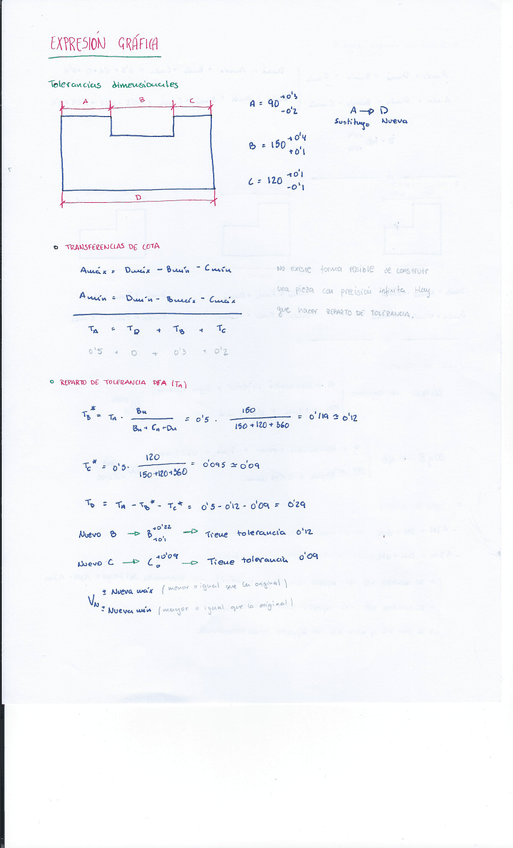 EXPRESIÓN GRÁFICA
Tolerancias dimensionales
A B C
D
A = 90 +0'3 -0'2
B = 150 +0'4 +0'1
C = 120 +0'1 -0'1
A → D
Sustituyo Nueva
TRANSFERENCIAS DE COTA
Amáx = Dmáx - Bmín - Cmín
Amín = Dmín - Bmáx - Cmáx
TA = TD + TB + TC
0'5 = 0 + 0'3 + 0'2
No existe forma posible de construir
una pieza con precisión infinita. Hay
que hacer REPARTO DE TOLERANCIA.
REPARTO DE TOLERANCIA DE A (TA)
TB* = TA · BN / BN + CN + DN = 0'5 · 150 / 150 + 120 + 360 = 0'119 ≅ 0'12
TC* = 0'5 · 120 / 150 + 120 + 360 = 0'095 ≅ 0'09
TD = TA - TB* - TC* = 0'5 - 0'12 - 0'09 = 0'29
Nuevo B → B +0'22 +0'1 → Tiene tolerancia 0'12
Nuevo C → C +0'09 0 → Tiene tolerancia 0'09
VN = Nueva máx (menor o igual que la original)
= Nueva mín (mayor o igual que la original)